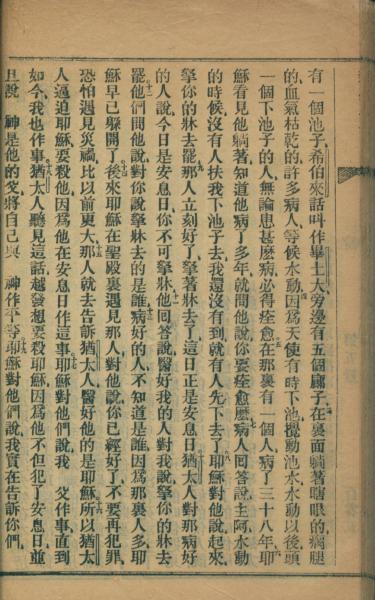 有一個池子希伯來話叫作畢士大旁邊有五個廊子在裏面躺著瞎眼的瘸腿
的血氣枯乾的許多病人等候水動因爲天使有時下池攪動池水水動以後頭
一個下池子的人無論患甚麼病必得痊愈在那裏有一個人病了三十八年耶
穌看見他躺著知道他病了多年就問他說你要痊愈麼病人回答說主阿水動
的時候沒有人扶我下池子去我還沒有到就有人先下去了耶穌對他說起來
拏你的牀去罷那人立刻好了拏著牀去了這日正是安息日猶太人對那病好
的人說今日是安息日你不可拏牀他回答說醫好我的人對我說拏你的牀去
罷他們問他說對你說拏牀去的是誰病好的人不知道是誰因爲那裏人多耶
穌早已躱開了後來耶穌在聖殿裏遇見那人對他說你已經好了不要再犯罪
恐怕遇見災禍比以前更大那人就去告訴猶太人醫好他的是耶穌所以猶太
人逼迫耶穌要殺他因爲他在安息日作這事耶穌對他們說我 父作事直到
如今我也作事猶太人聽見這話越發想要殺耶穌因爲他不但犯了安息日並
且說 神是他的父將自己與 神作平等耶穌對他們說我實在告訴你們